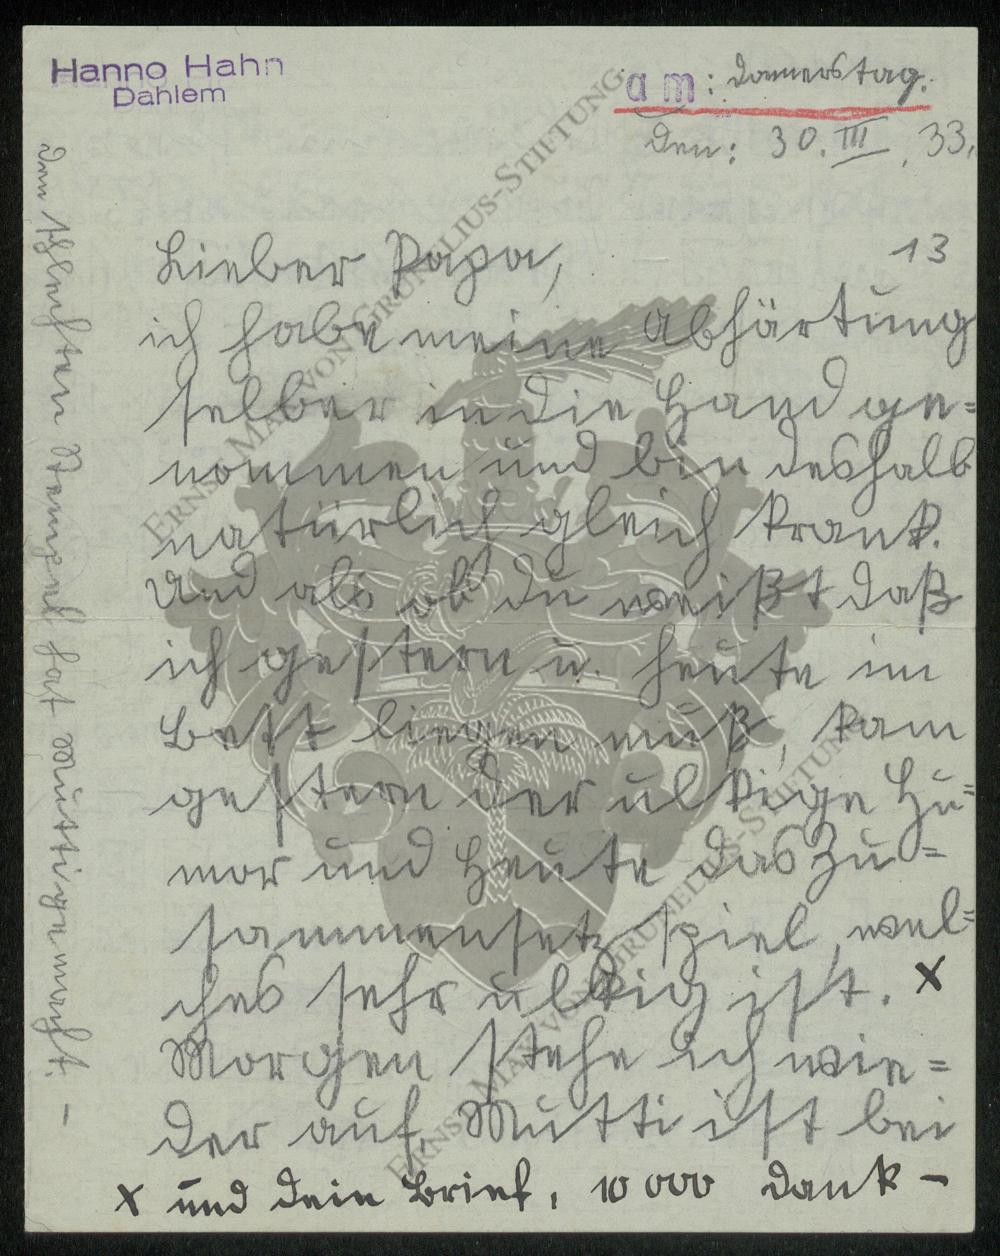 Hanno Hahn
Dahlem
am: Donnerstag.
Den: 30. III. 33.
13
Lieber Papa,
ich habe meine Abhärtung
selber in die Hand ge=
nommen und bin deshalb
natürlich gleich krank.
Und als ob du weißt daß
ich gestern u. heute im
Bett liegen muß, kam
gestern der ulkige Hu=
mor und heute das Zu=
sammensetzspiel, wel=
ches sehr ulkig ist. x
Morgen stehe ich wie=
der auf. Mutti ist bei
x und dein Brief, 10 000 Dank –
den schlechten Stempel hat Mutti gemacht. –
ERNST MAX VON GRUNELIUS-STIFTUNG
ERNST MAX VON GRUNELIUS-STIFTUNG